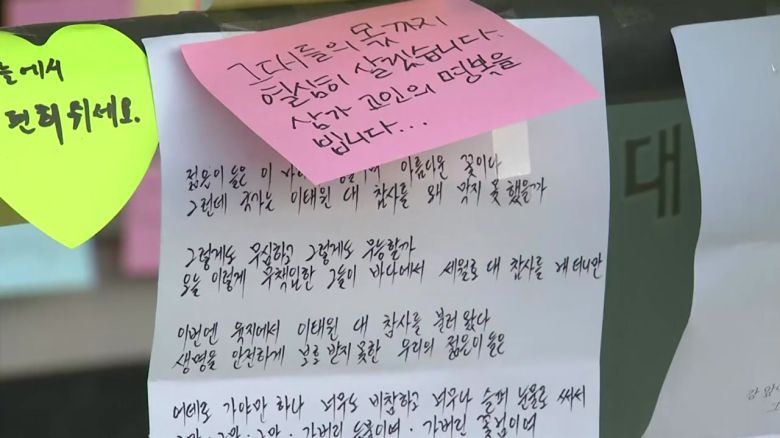 늘에서
편히 쉬세요.
그대들의 몫까지
열심히 살겠습니다.
삼가 고인의 명복을
빕니다...
젊은이들은 이 아름다운 꽃이다
그런데 국가는 이태원 대 참사를 왜 막지 못 했을까
그렇게도 무심하고 그렇게도 무능할까
오늘 이렇게 무책임한 그들이 바다에서 세월로 대 참사를 내 더니만
이번엔 육지에서 이태원 대 참사를 불러 왔다
생명을 안전하게 보호 받지 못한 우리의 젊은이들은
어데로 가야만 하나 너무도 비참하고 너무나 슬퍼 눈물로 써서
가버린 꽃잎이여
대